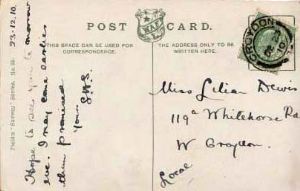 23.12.10.
Hope to see you to-morrow
eve. I may come earlier
than promised
Yours
POST CARD.
THIS SPACE CAN BE USED FOR
CORRESPONDENCE.
THE ADDRESS ONLY TO BE
WRITTEN HERE.
CROYDON
Miss Lilian Dewis
119a Whitehorse Rd
W Croydon
Local